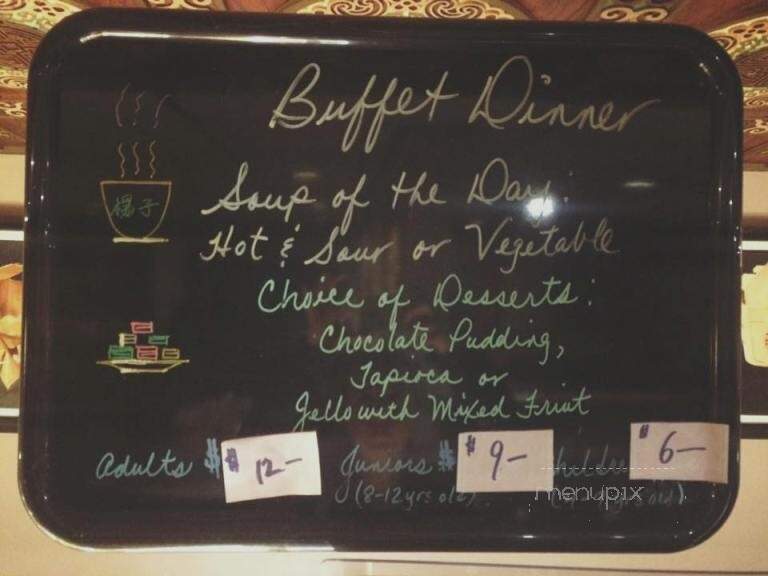 Buffet Dinner
Soup of the Day:
Hot & Sour or Vegetable
Choice of Desserts:
Chocolate Pudding,
Tapioca or
Jello with Mixed Fruit
Adults $ $12- Juniors $ $9- $6-
(8-12yrs old)
楊子
menupix